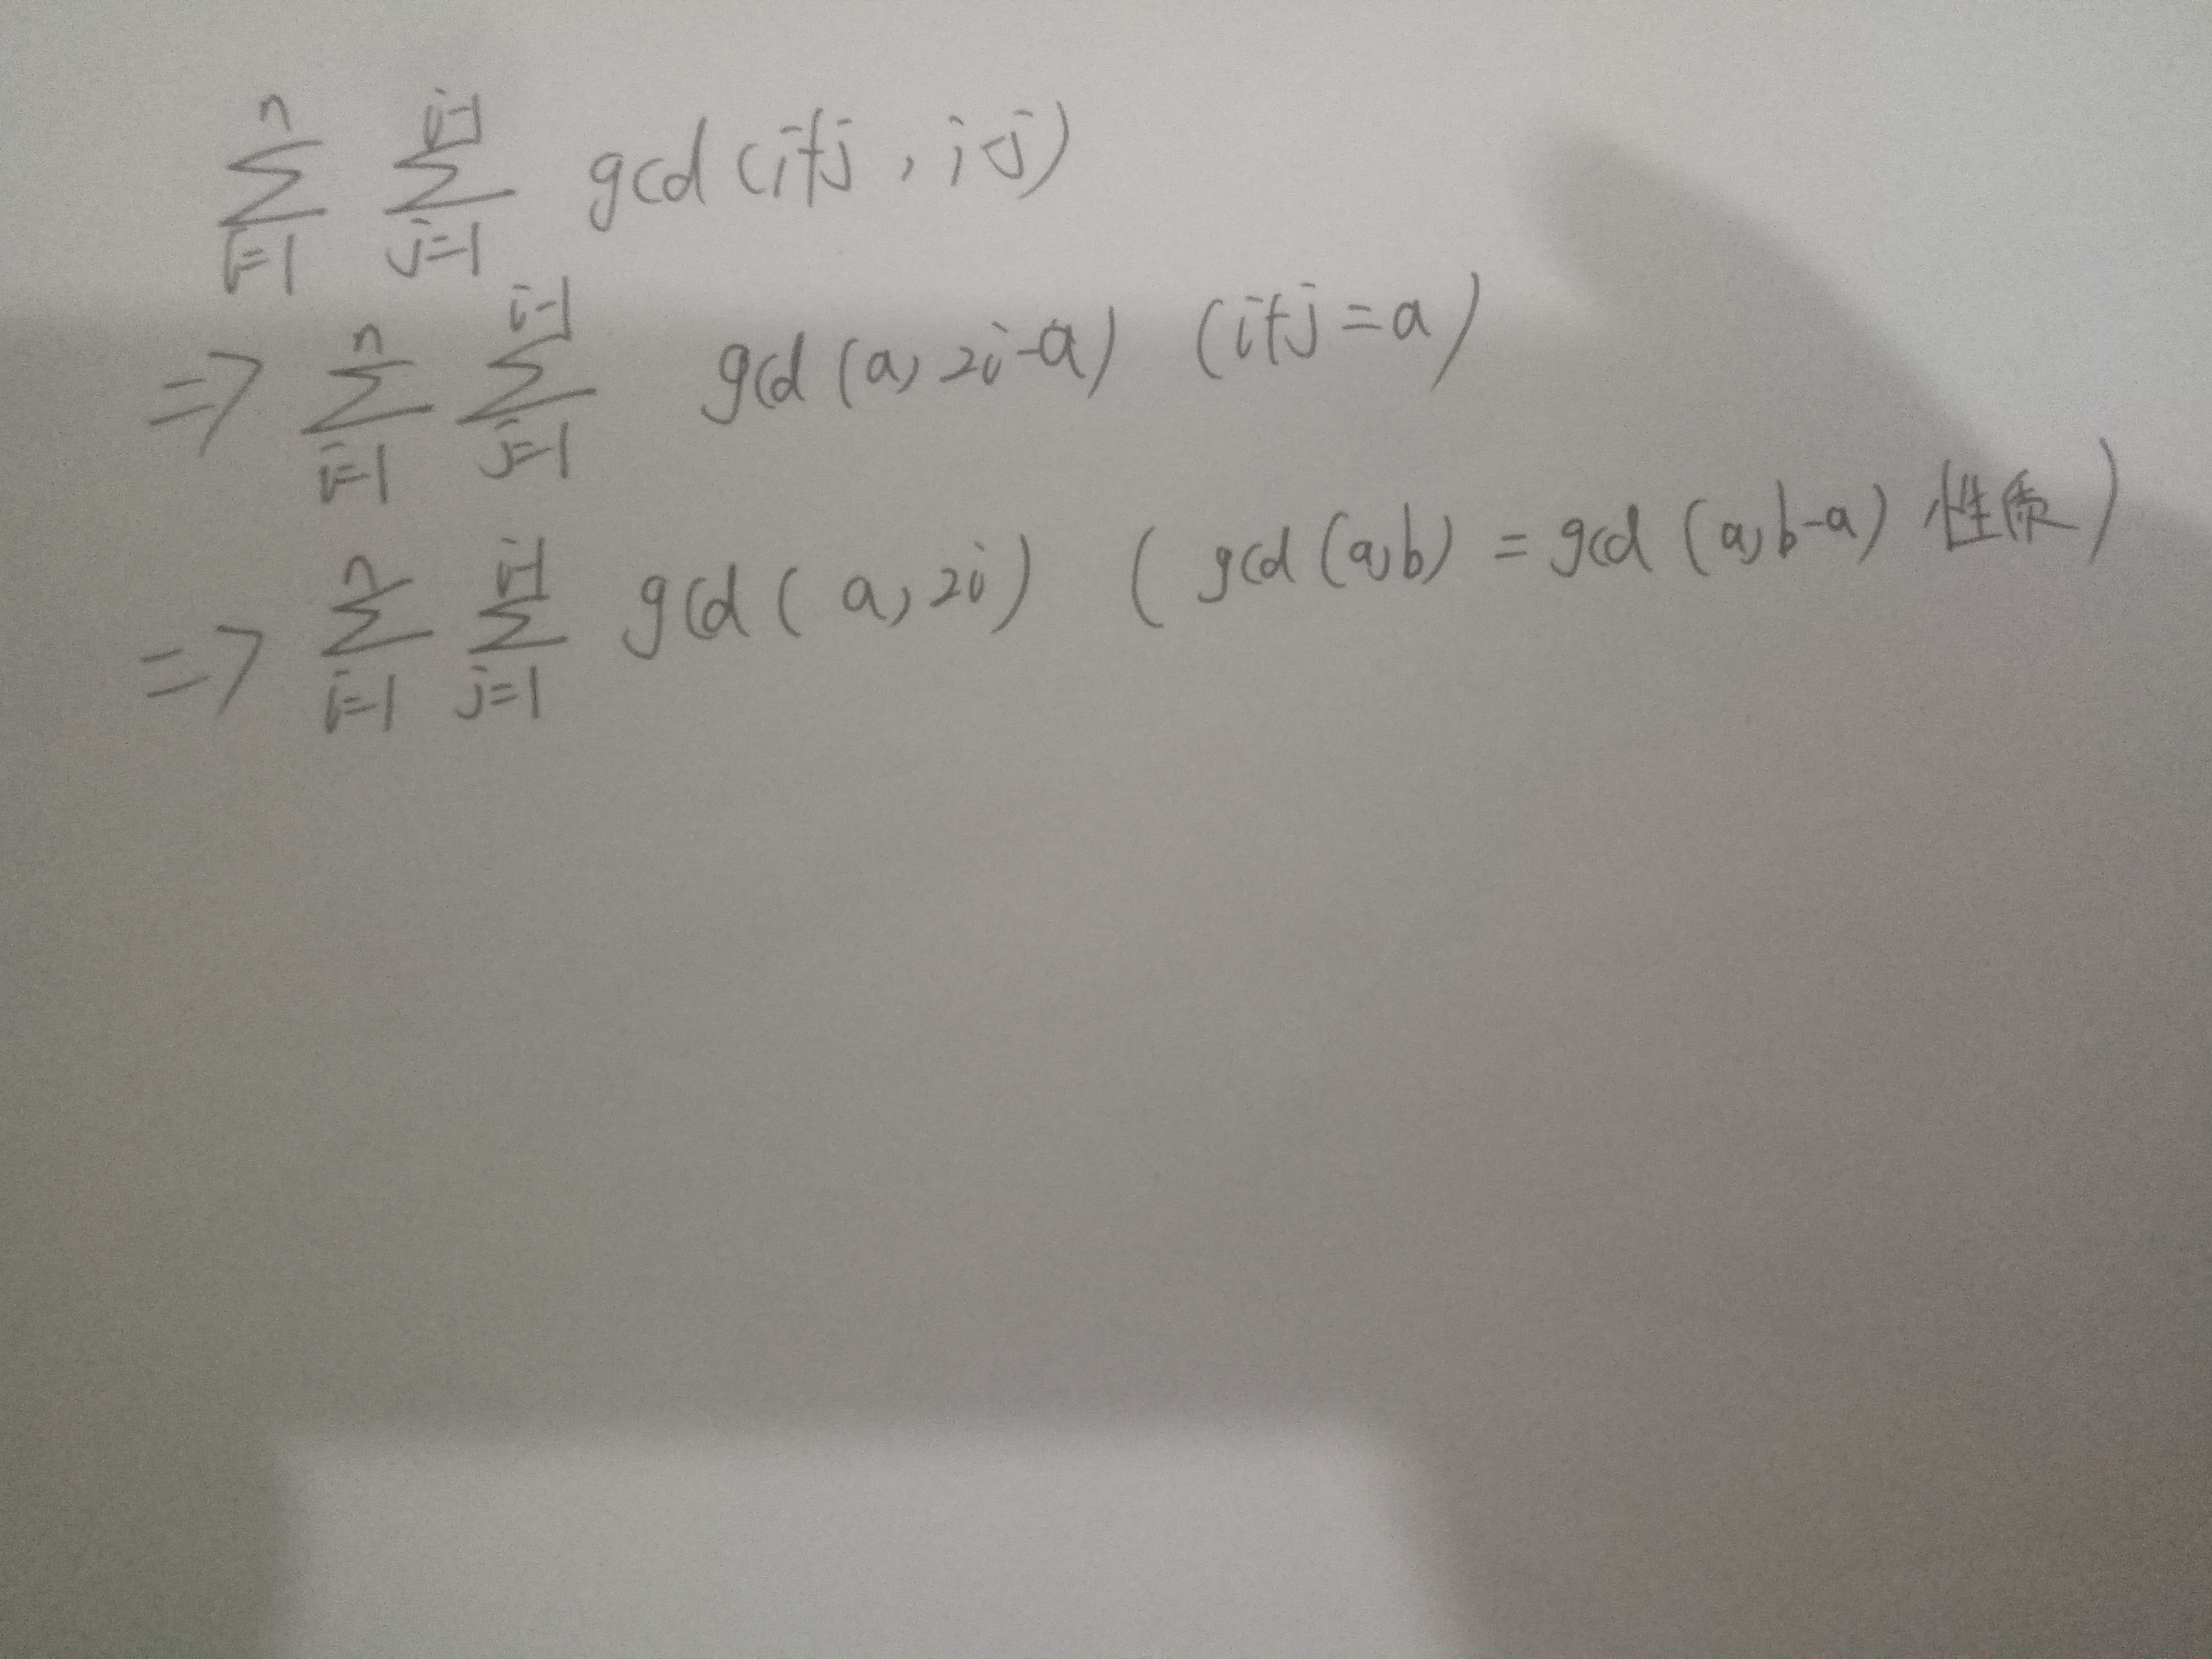 \sum_{i=1}^{n} \sum_{j=1}^{i-1} gcd(i+j, i-j)
=> \sum_{i=1}^{n} \sum_{j=1}^{i-1} gcd(a, 2i-a) (i+j=a)
=> \sum_{i=1}^{n} \sum_{j=1}^{i-1} gcd(a, 2i) (gcd(a,b) = gcd(a,b-a) 性质)